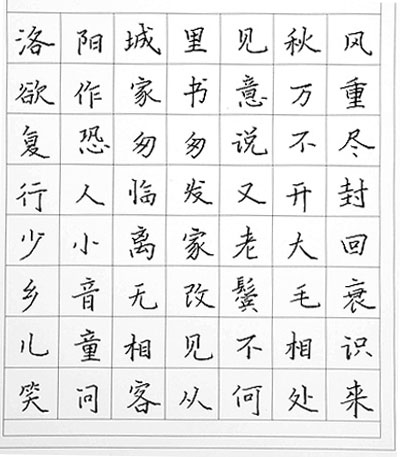 洛阳城里见秋风
欲作家书意万重
复恐匆匆说不尽
行人临发又开封
少小离家老大回
乡音无改鬓毛衰
儿童相见不相识
笑问客从何处来